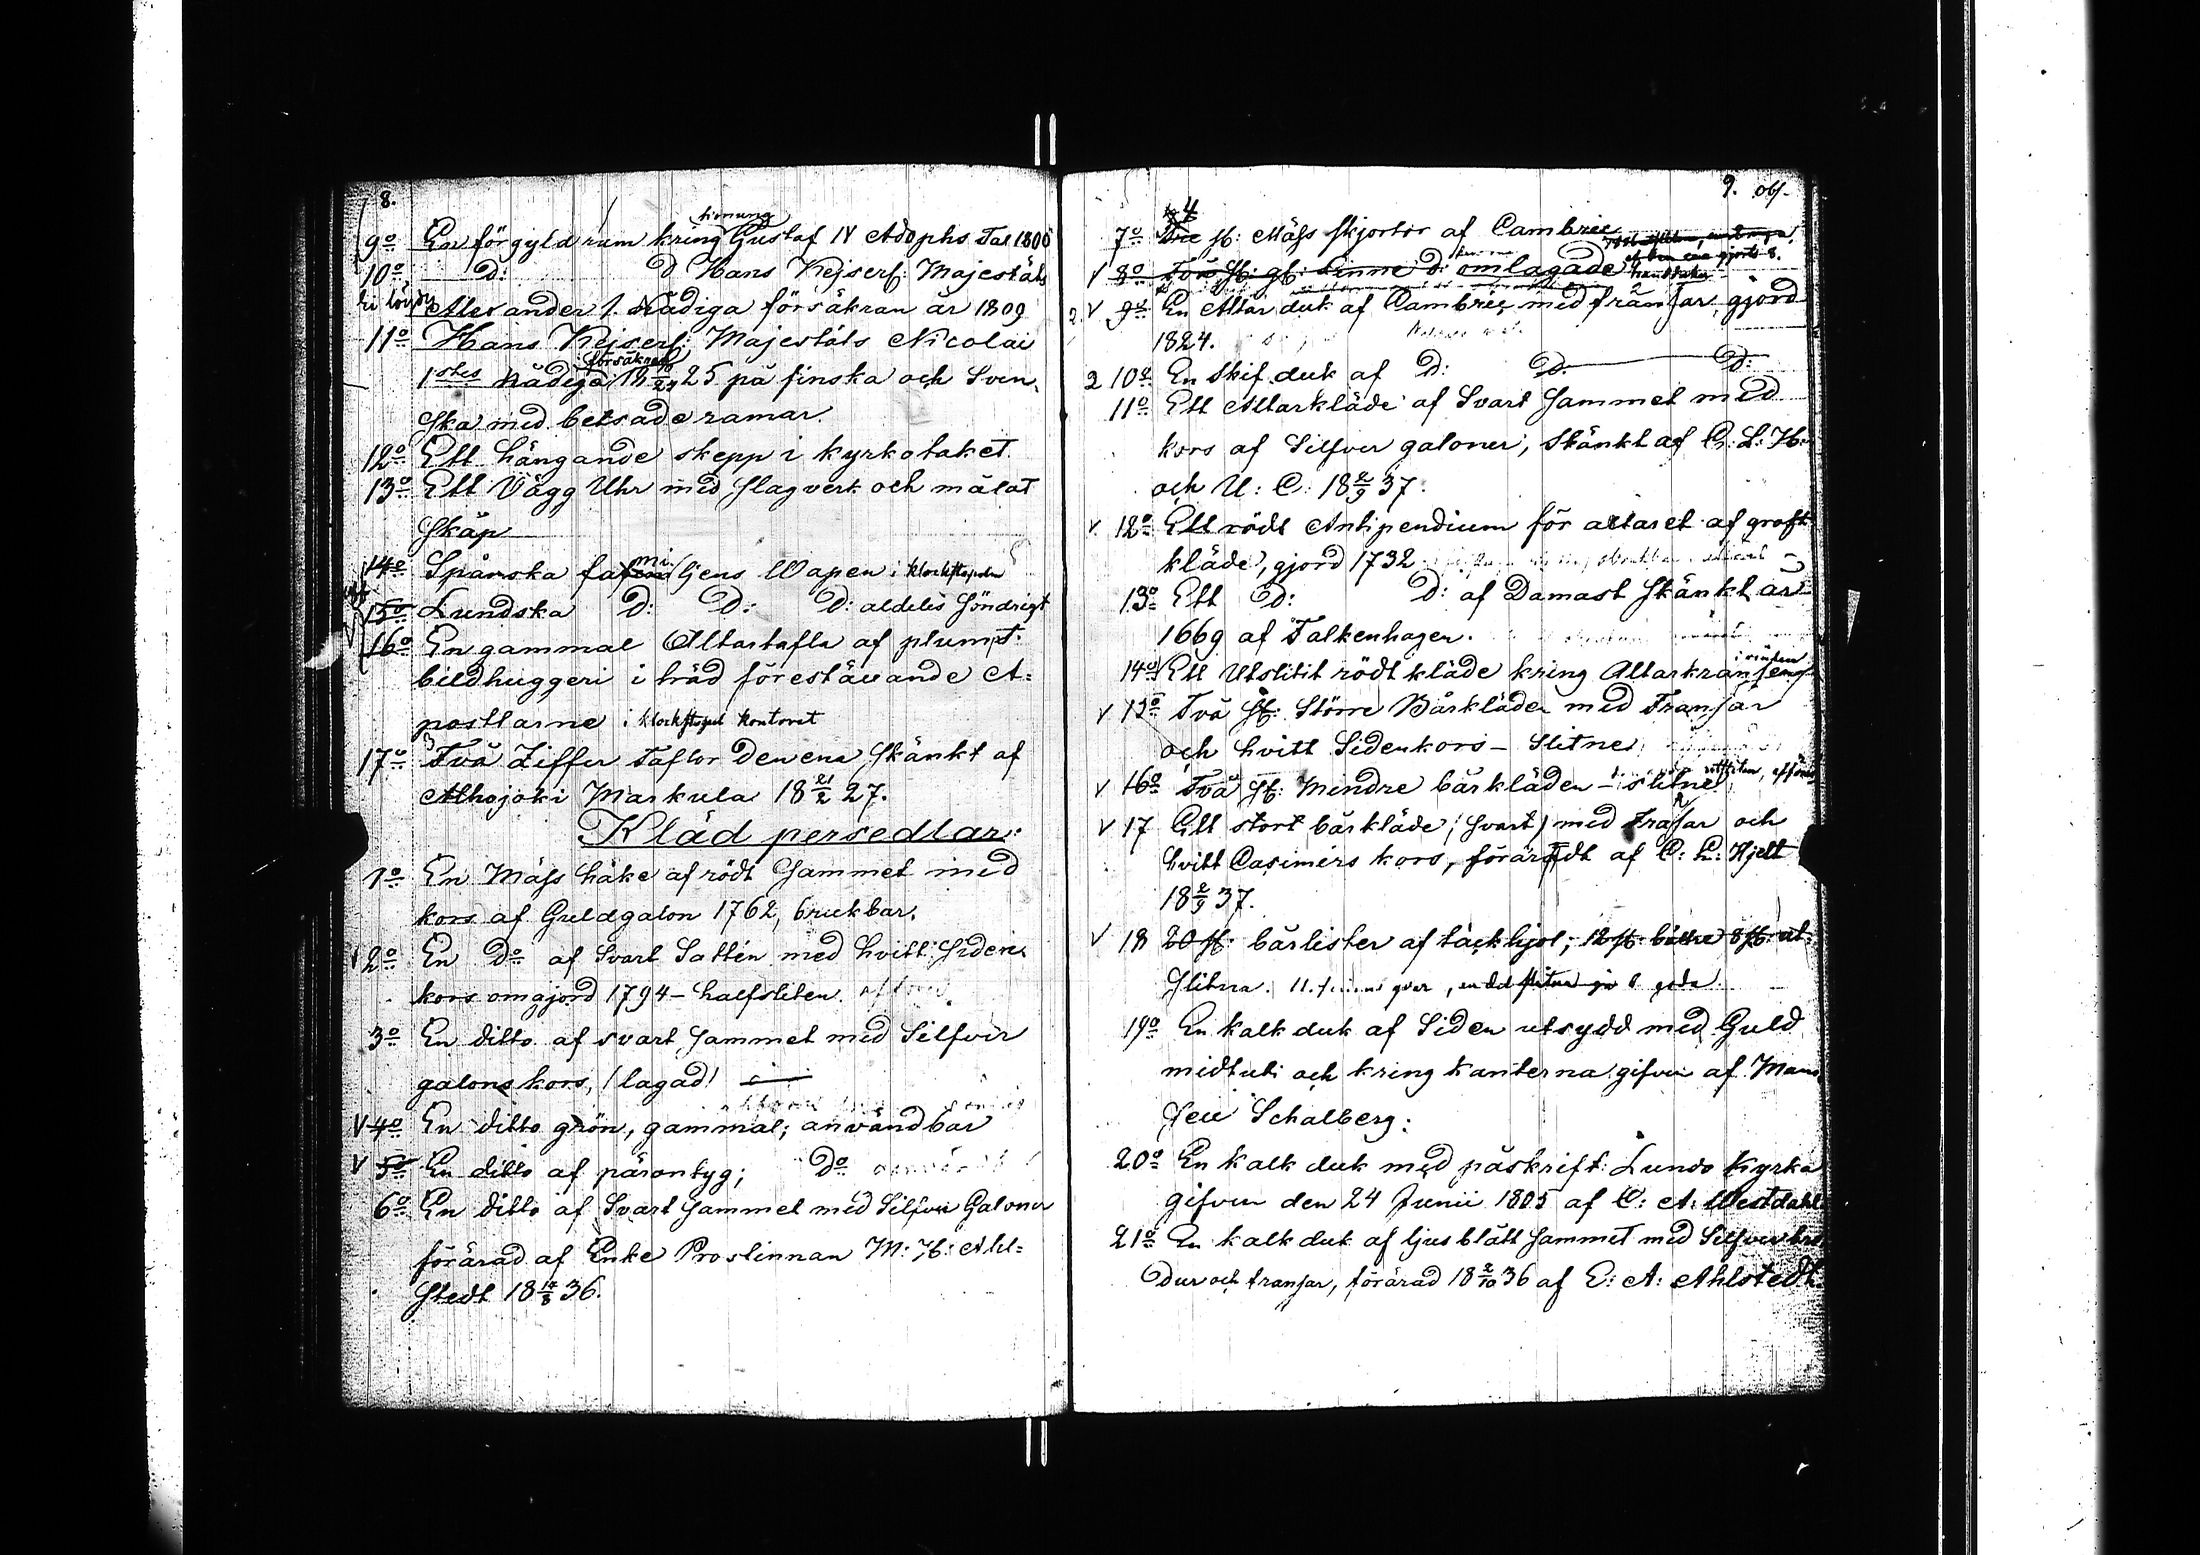 8.
9o En förgyld ram kring Gustaf IV Adophs Tal 1800
10o D: D Hans Kejserl: Majestäts
Alexander 1. Nådiga försäkran är 1809
11o Hans Kejserl: Majestäts Nicolai
försäkran
1stes Nådiga 25 på finska och Sven-
ska med betsade ramar.
12o Ett hängande skepp i kyrkotaket.
13o Ett Vägg Uhr med slagverk och målat
Skåp
14o Spårnska familjens Wapen i klockstapeln
15o Lundska D: D: D: aldeles söndrigt
16o En gammal Altartafla af plumpt
bildhuggeri i träd föreställande A-
postlarne i klockstapel kontoret
17o Två Ziffer Taflor den ena skänkt af
Alhojoki Markula 18 21/2 27.
Kläd persedlar:
1o En Mäss håke af rödt Sammet med
kors af Guldgalon 1762, brukbar.
2o En Do af Svart Sattin med hvitt Siden
kors omgjord 1794 - halfsliten.
3o En ditto af svart Sammet med Silfver
galons kors, (lagad)
V 4o En ditto grön, gammal; användbar
V 5o En ditto af pärontyg; Do
6o En ditto af Svart Sammet med Silfver Galoner
förärad af Enke Prostinnan M: H: Ahl-
stedt 18 14/8 36.
9.
4
7o st: Mäss skjortor af Cambric
V 8o Två st: gl: Linne d: omlagade
2 V 9o En Altar duk af Cambric, med fransar, gjord
1824.
2 10o En Skif duk af D: D: D:
11o Ett Altarkläde af Svart Sammet med
kors af Silfver galoner, Skänkt af C: L: H:
och U: C: 18 2/9 37.
V. 12o Ett rödt Antipendium för altaret af groft
kläde, gjord 1732
13o Ett D: D: af Damast Skänkt är
1669 af Falkenhagen.
14o Ett Utslitit rödt kläde kring Altarkransen
V 15o Två st: Större Bårkläden med Fransar
och hvitt Sidenkors - Slitne
V 16o Två st: Mindre bårkläden - slitne
V 17 Ett stort bårkläde (svart) med Frasar och
hvitt Casimirs kors, förärdt af C: L: Hjelt
18 2/9 37.
V 18 20 st: bårlister af täckhjol; 12 st: bättre 8 st: ut-
slitna.
19o En kalk duk af Siden utsydd med Guld
midtuti och kring kanterna gifven af Mam
sell Schalberg:
20o En kalk duk med påskrift: Lundo Kyrka
gifven den 24 Junii 1805 af C: A: Westdahl
21o En kalk duk af ljusblått Sammet med Silfver bro
dur och fransar, förärad 18 2/10 36 af E: A: Ahlstedt